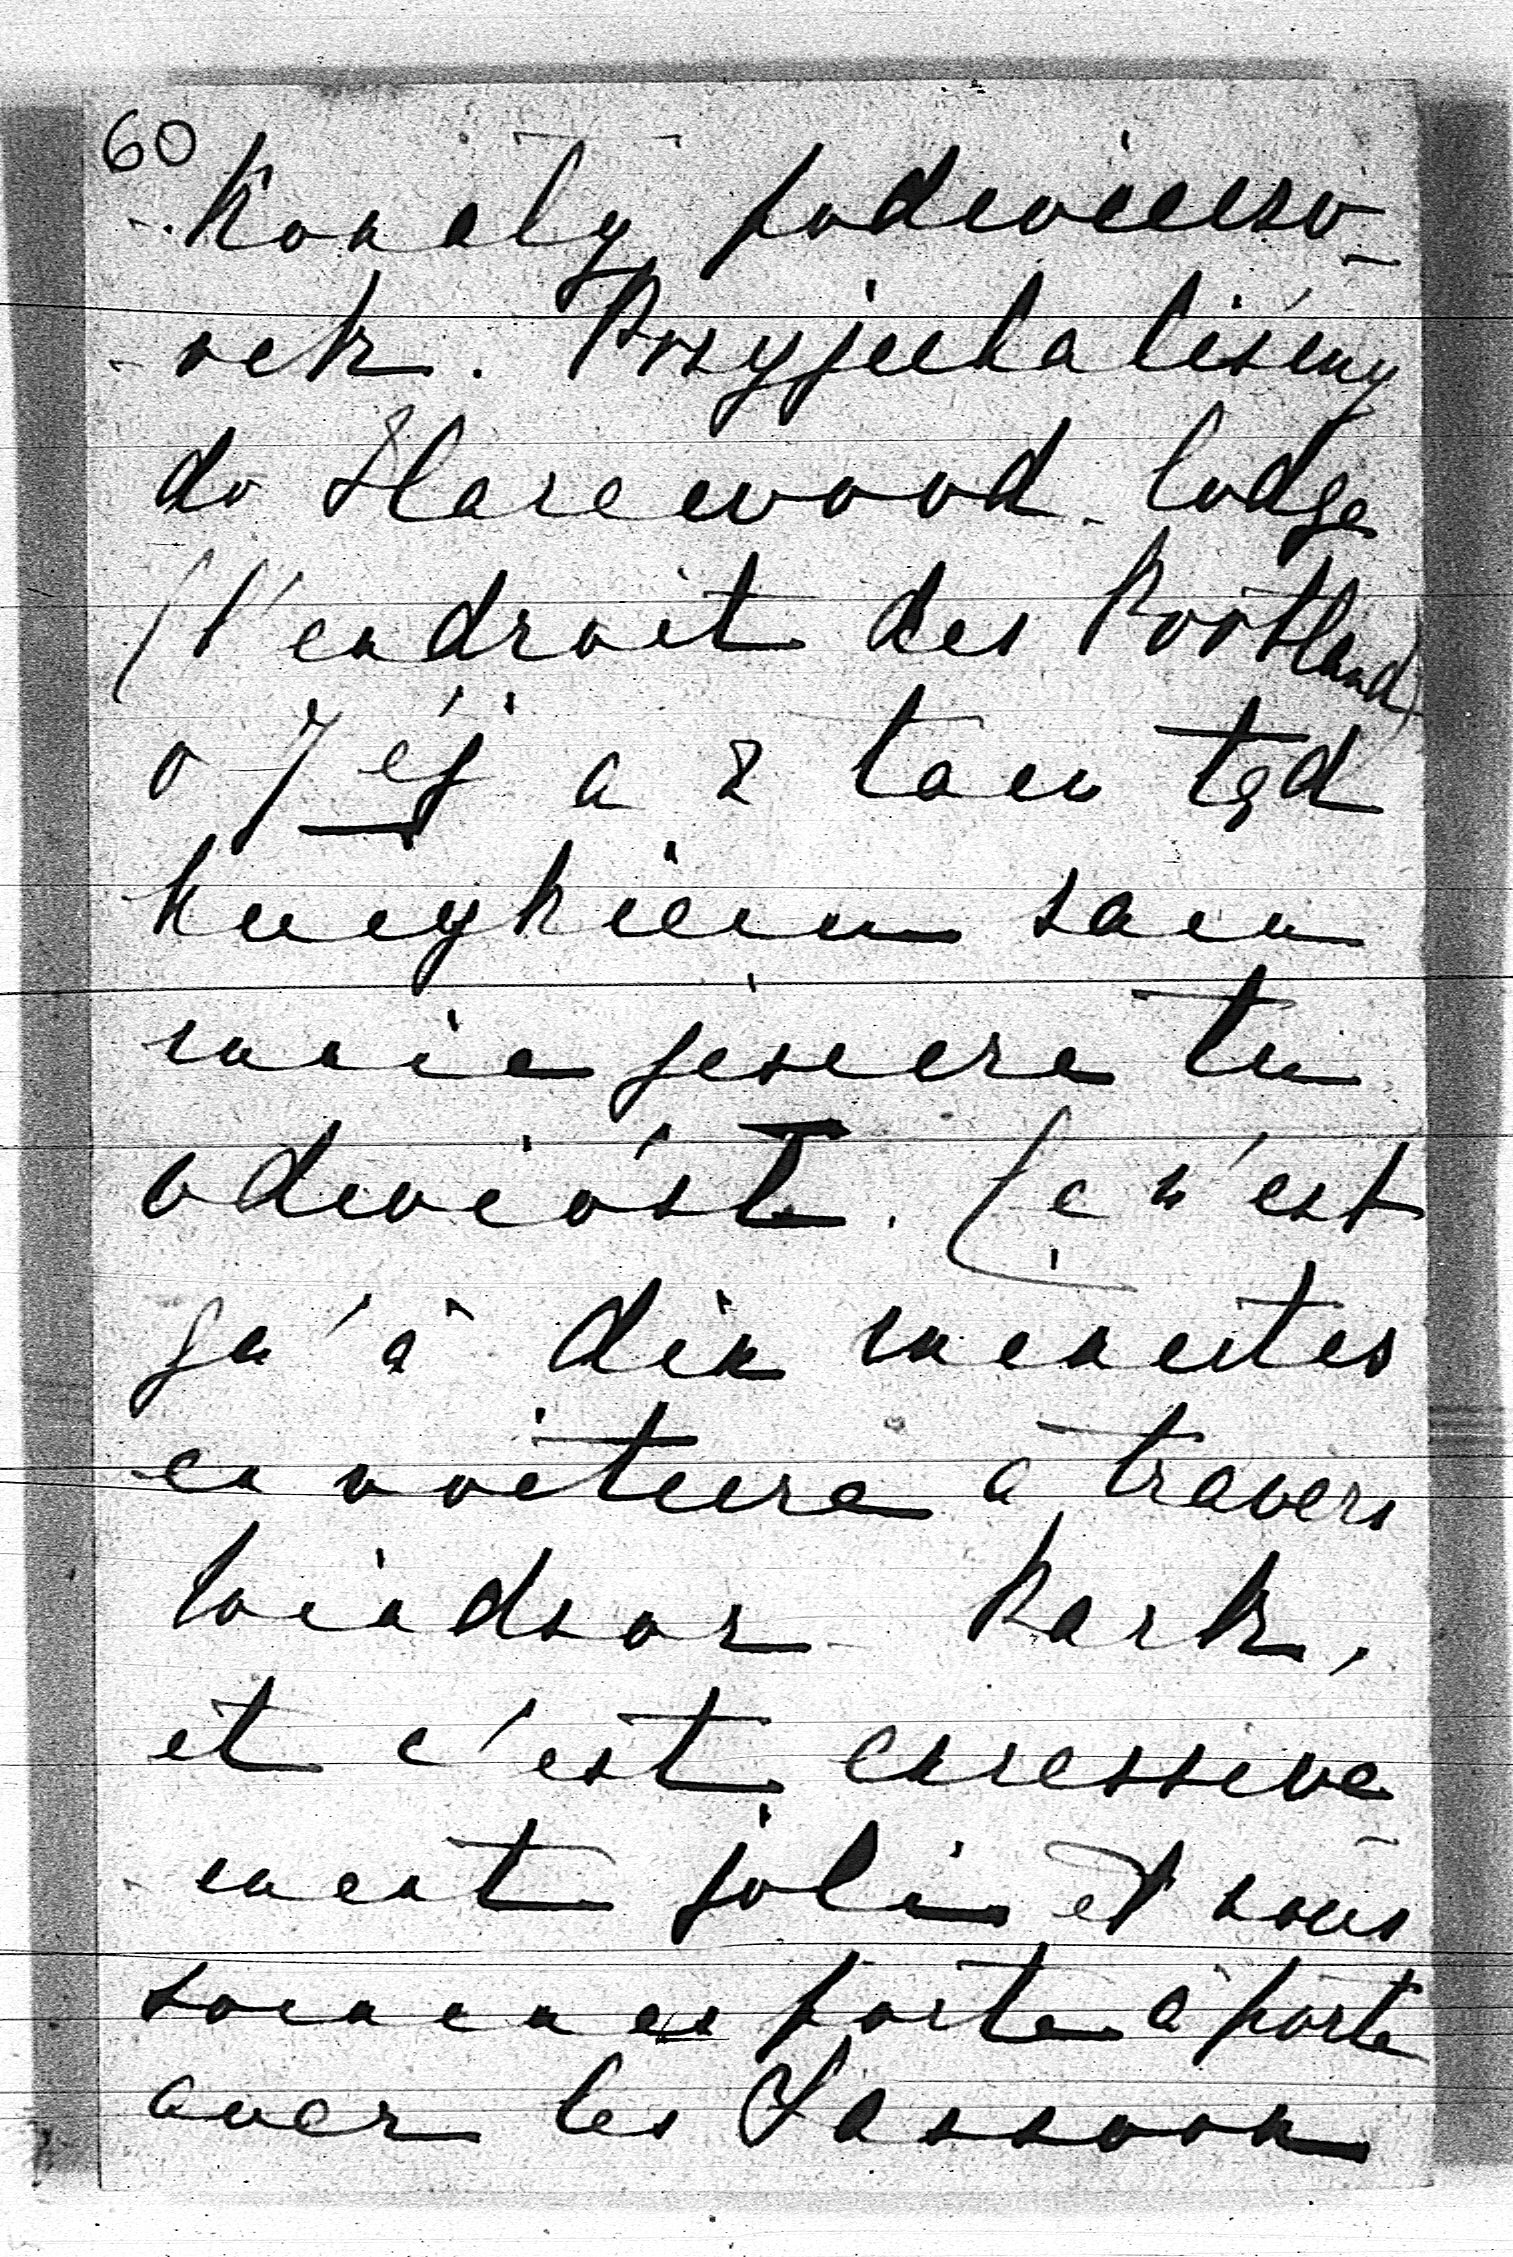 60
- konały podwieczo-
- rek. Przyjechaliśmy
do Harewood - lodge
(l'endroit des Portland)
o 7ej a z tam tąd
kucykiem sam
mnie jeszcze tu
odwiózł. Ce n'est
qu'à dix minutes
en voiture à travers
Windsor - Park,
et c'est excessive
- ment joli et nous
sommes porte à porte
avec les Sassoon